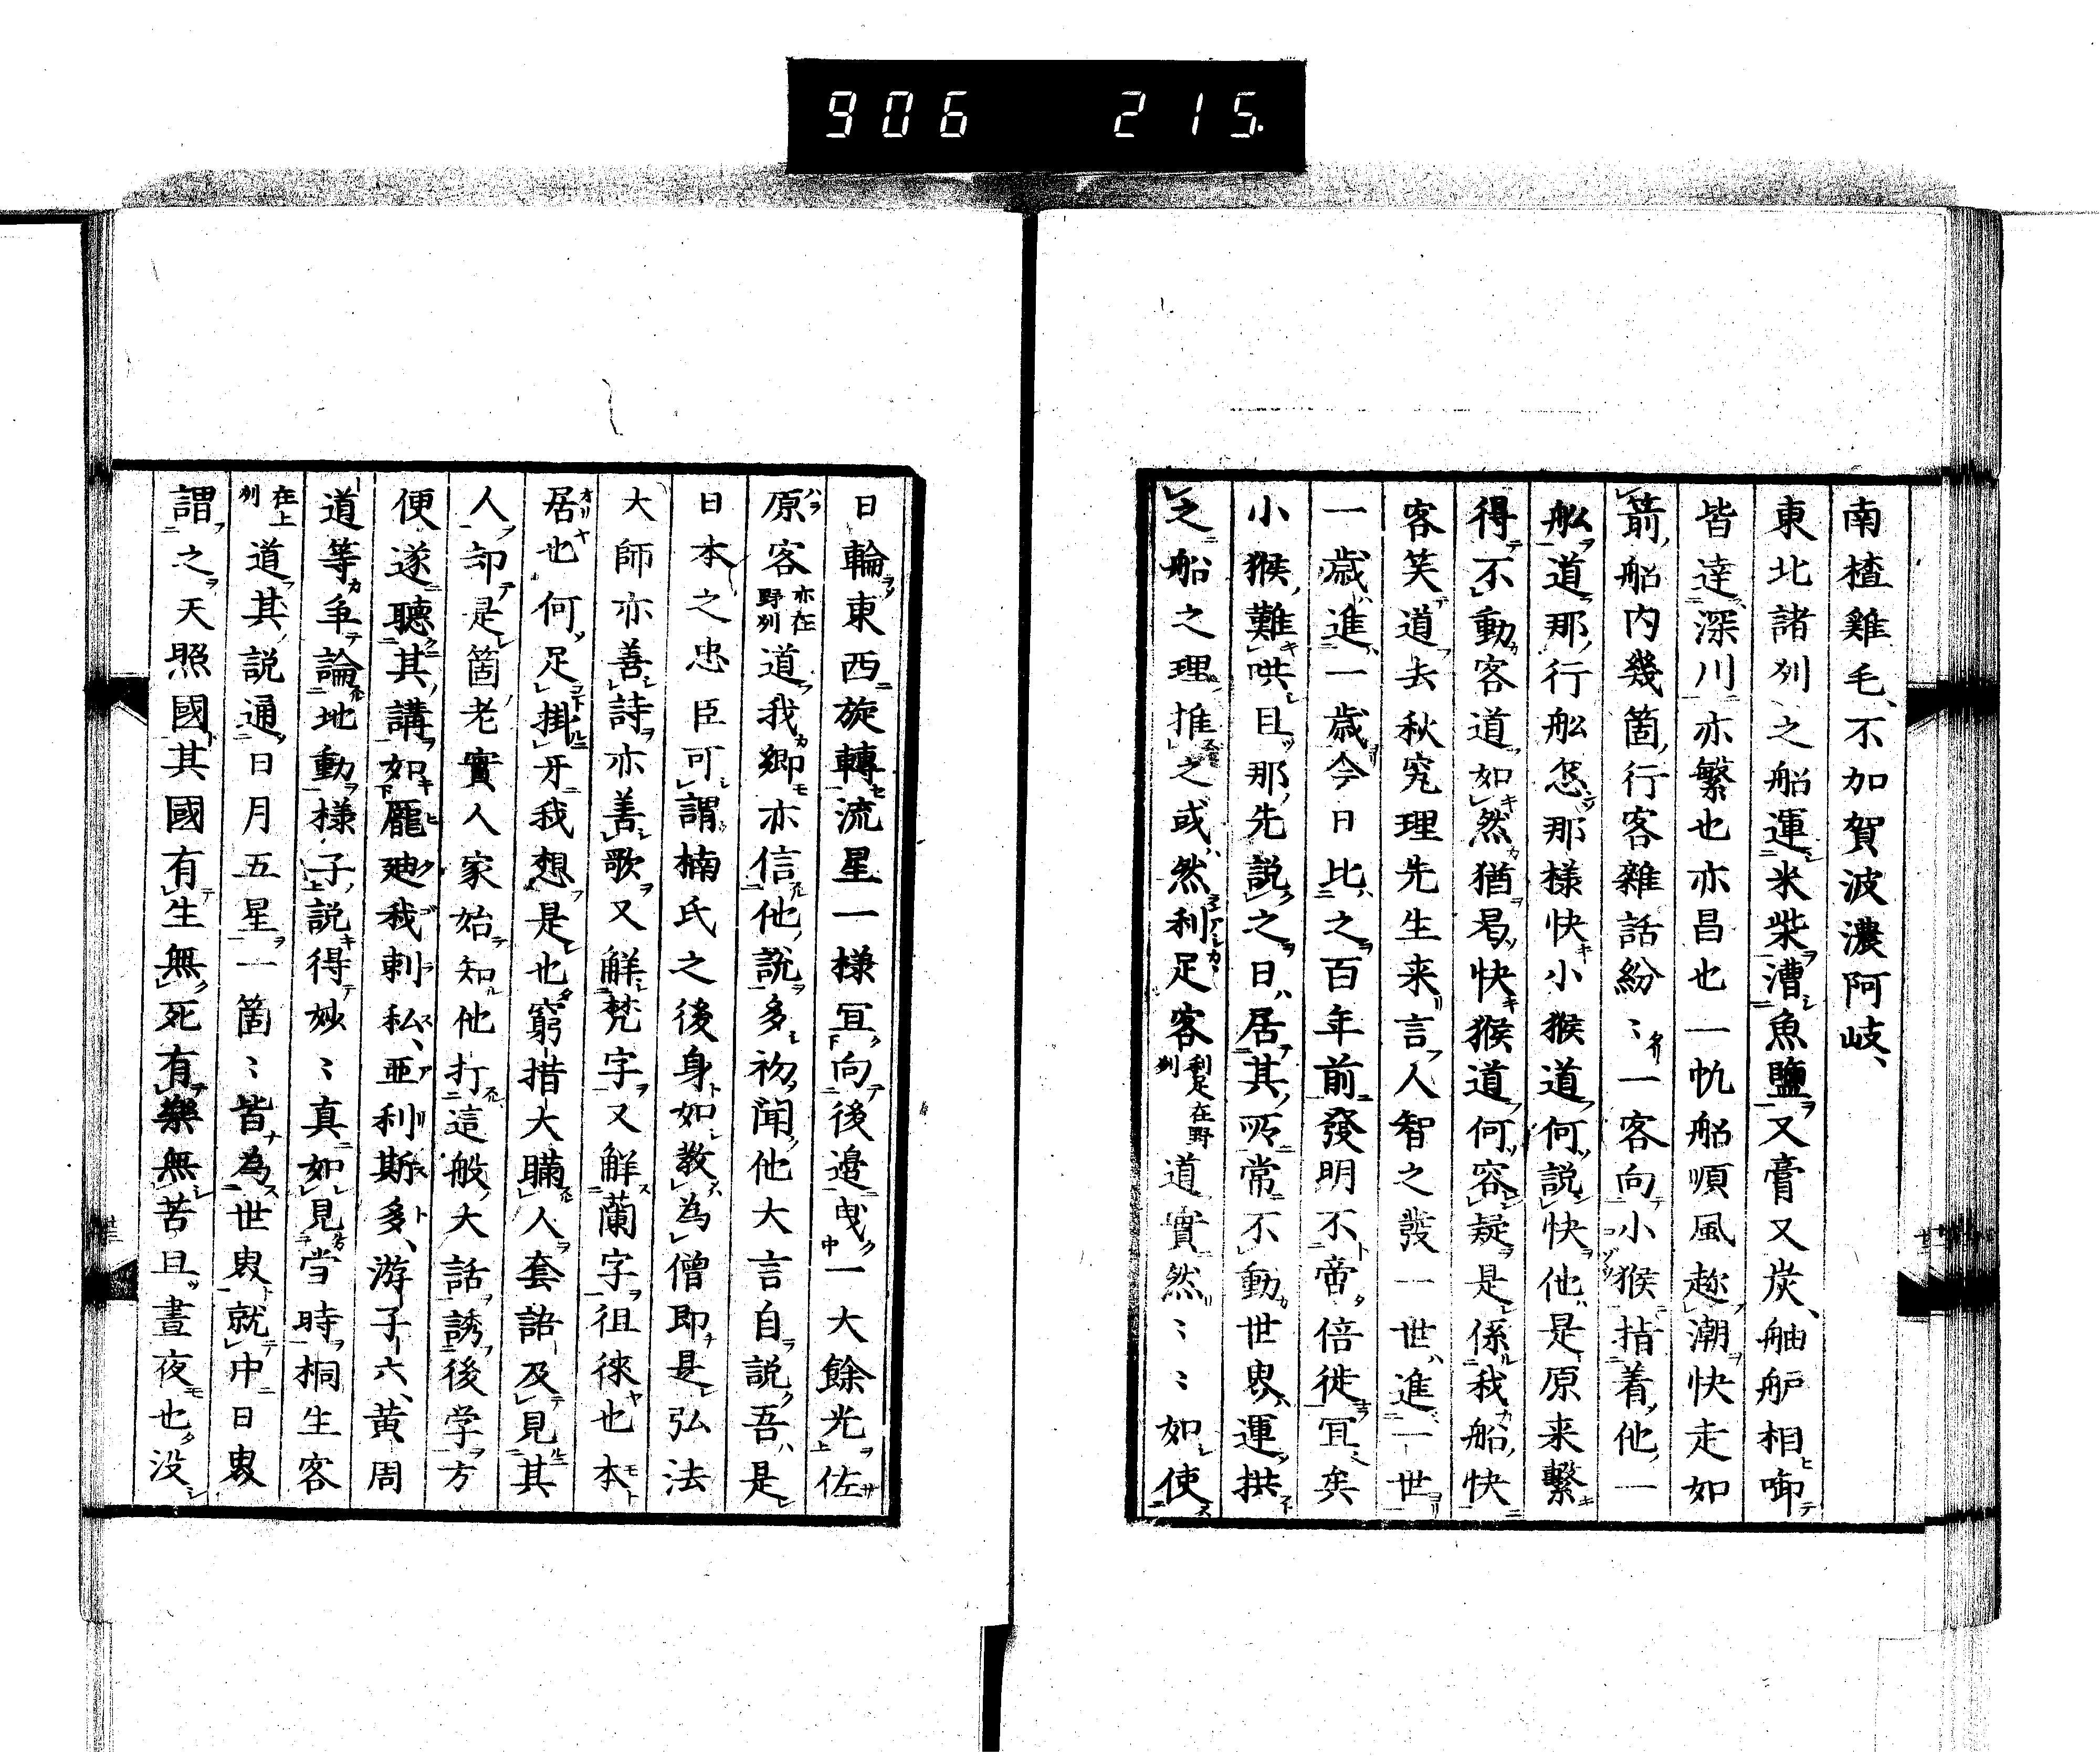 906 215.
南楂雞毛、不加賀波濃阿岐、
東北諸列之船運米柴漕魚鹽又膏又炭、舳舻相啣
皆達深川亦繁也亦昌也一帆船順風趂潮快走如
箭船内幾箇行客雜話紛〻一客向小猴指着他一
舩道那行舩怎那様快小猴道何説快他是原来繋
得不動客道如然猶曷快猴道何容疑是係我船快
客笑道去秋究理先生来言人智之発一世進一世
一歳進一歳今日比之百年前發明不啻倍徙冝矣
小猴難哄且那先説之曰居其所常不動世界運拱
之船之理推之或然利足客利足在野列道實然〻〻如使
日輪東西旋轉流星一様冝向後邊曳一大餘光佐
原客亦在野列道我郷亦信他説多初聞他大言自説吾是
日本之忠臣可謂楠氏之後身如教為僧即是弘法
大師亦善詩亦善歌又觧梵字又觧蘭字徂徠也本
居也何足掛牙我想是也窮措大瞞人套語及見其
人却是箇老實人家始知他打這般大話誘後学方
便遂聽其講如龎廸我刺私、亜利斯多、游子六、黄周
道等争論地動様子説得妙〻真如見当時桐生客
在上列道其説通日月五星一箇〻皆為世界就中日界
謂之天照國其國有生無死有樂無苦且晝夜也没